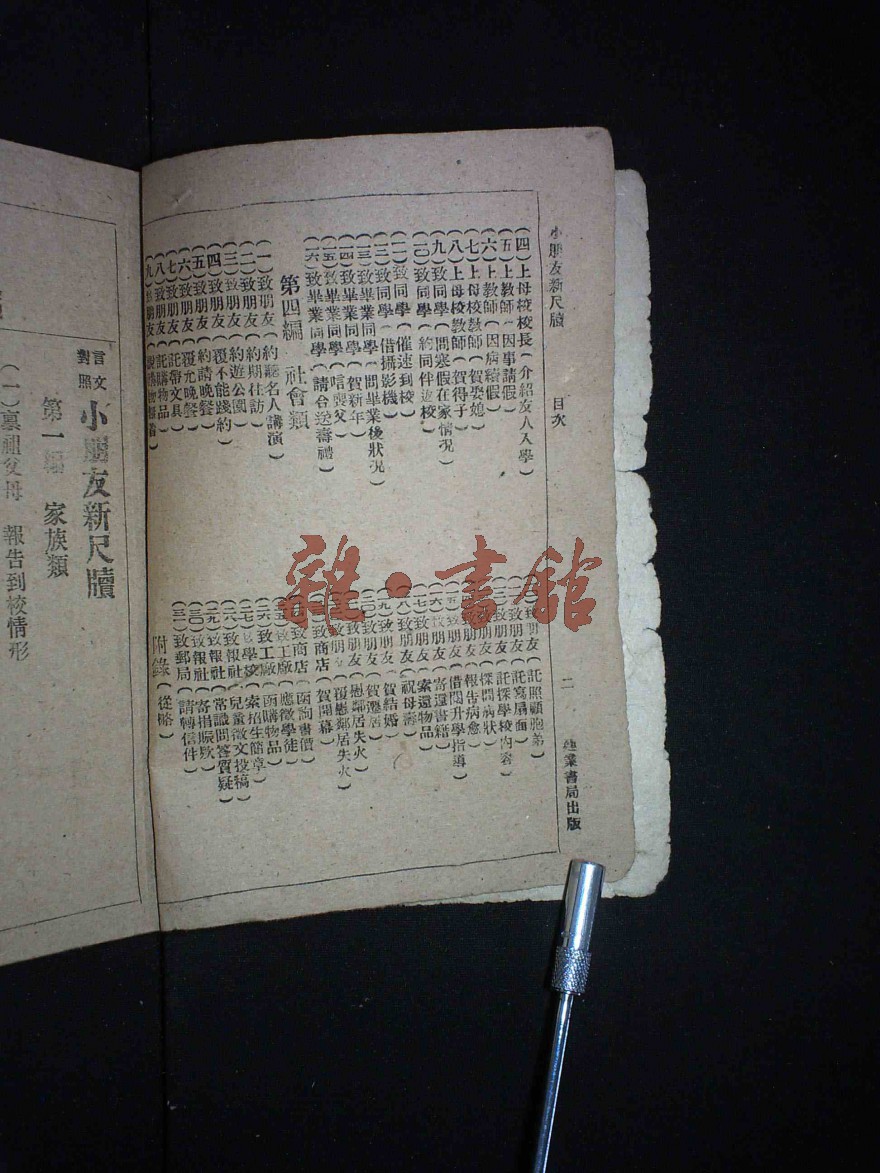 小朋友新尺牘
目次
二
建業書局出版
(四)上母校校長(介紹友人入學)
(五)上教師(因事請假)
(六)上教師(因病續假)
(七)上母校教師(賀娶媳)
(八)上母校教師(賀得子)
(九)致同學(問寒假在家情況)
(一〇)致同學(約同伴返校)
(一一)致同學(催速到校)
(一二)致同學(借攝影機)
(一三)致畢業同學(問畢業後狀況)
(一四)致畢業同學(賀新年)
(一五)致畢業同學(唁喪父)
(一六)致畢業同學(請合送壽禮)
第四編 社會類
(一)致朋友(約聽名人講演)
(二)致朋友(約期往訪)
(三)致朋友(約遊公園)
(四)致朋友(覆不能踐約)
(五)致朋友(約請晚餐)
(六)致朋友(覆允晚餐)
(七)致朋友(託帶文具)
(八)致朋友(託購物品)
(九)致朋友
致朋友(託照顧胞弟)
致朋友(託寫扇面)
致朋友(託探學校內容)
致朋友(探問病狀)
致朋友(報告病愈)
致朋友(借閱升學指導)
(一六)致朋友(寄還書籍)
(一七)致朋友(索還物品)
(一八)致朋友(祝母壽)
(一九)致朋友(賀結婚)
(二〇)致朋友(賀遷居)
致朋友(慰鄰居失火)
致朋友(覆慰鄰居失火)
致商店(賀開幕)
致商店(函詢書價)
致工廠(應徵學徒)
(二六)致工廠(函購物品)
(二七)致學校(索招生簡章)
(二八)致報社(兒童徵文投稿)
(二九)致報社(常識問答質疑)
(三〇)致報社(寄捐賑款)
(三一)致郵局(請轉信件)
附錄(從略)
言文對照
小朋友新尺牘
第一編 家族類
(一)稟祖父母 報告到校情形
雜·書館